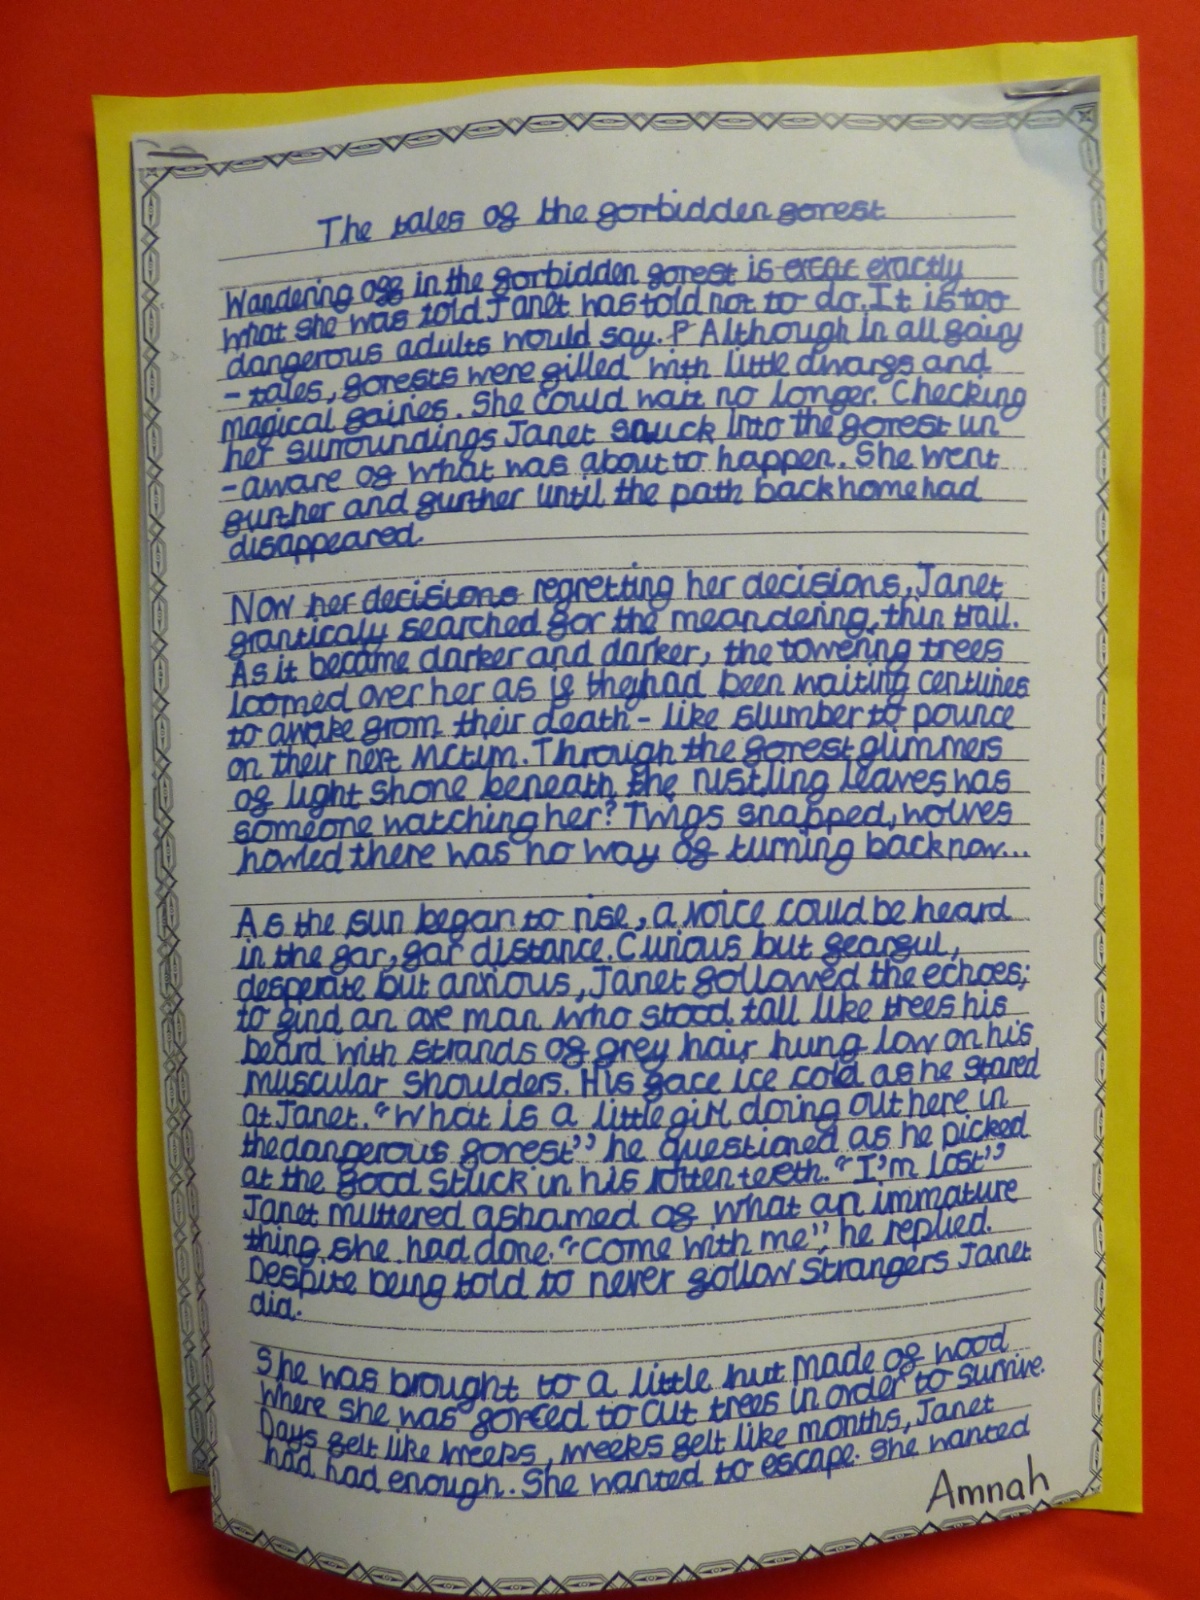 The tales of the forbidden forest
Wandering off in the forbidden forest is exat exactly
what she was told Janet has told not to do. It is too
dangerous adults would say. P Although in all fairy
- tales, forests were filled with little dwarfs and
magical fairies. She could wait no longer. Checking
her surroundings Janet snuck into the forest un
- aware of what was about to happen. She went
further and further until the path back home had
disappeared.
Now her decisions regretting her decisions, Janet
franticaly searched for the meandering, thin trail.
As it became darker and darker, the towering trees
loomed over her as if they had been waiting centuries
to awake from their death - like slumber to pounce
on their next victim. Through the forest glimmers
of light shone beneath the rustling leaves was
someone watching her? Twigs snapped, wolves
howled there was no way of turning back now...
As the sun began to rise, a voice could be heard
in the far, far distance. Curious but fearful,
desperate but anxious, Janet followed the echoes;
to find an axe man who stood tall like trees his
beard with strands of grey hair hung low on his
muscular shoulders. His face ice cold as he stared
at Janet. "What is a little girl doing out here in
the dangerous forest" he questioned as he picked
at the food stuck in his rotten teeth. "I'm lost"
Janet muttered ashamed of what an immature
thing she had done. "Come with me", he replied.
Despite being told to never follow strangers Janet
did.
She was brought to a little hut made of wood
where she was forced to cut trees in order to survive.
Days felt like weeks, weeks felt like months, Janet
had had enough. She wanted to escape. She wanted
Amnah